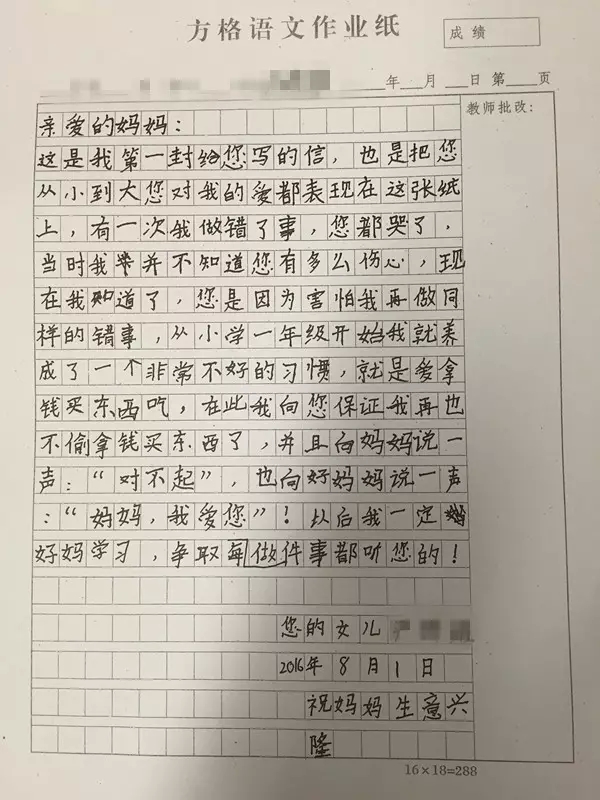 方格语文作业纸
成绩
年 月 日 第 页
教师批改：
亲爱的妈妈：
这是我第一封给您写的信，也是把您
从小到大您对我的爱都表现在这张纸
上，有一次我做错了事，您都哭了，
当时我并不知道您有多么伤心，现
在我知道了，您是因为害怕我再做同
样的错事，从小学一年级开始我就养
成了一个非常不好的习惯，就是爱拿
钱买东西吃，在此我向您保证我再也
不偷拿钱买东西了，并且向妈妈说一
声：“对不起”，也向好妈妈说一声
：“妈妈，我爱您”！以后我一定
好妈学习，争取每做件事都听您的！
您的女儿
2016年8月1日
祝妈妈生意兴
隆
16×18=288